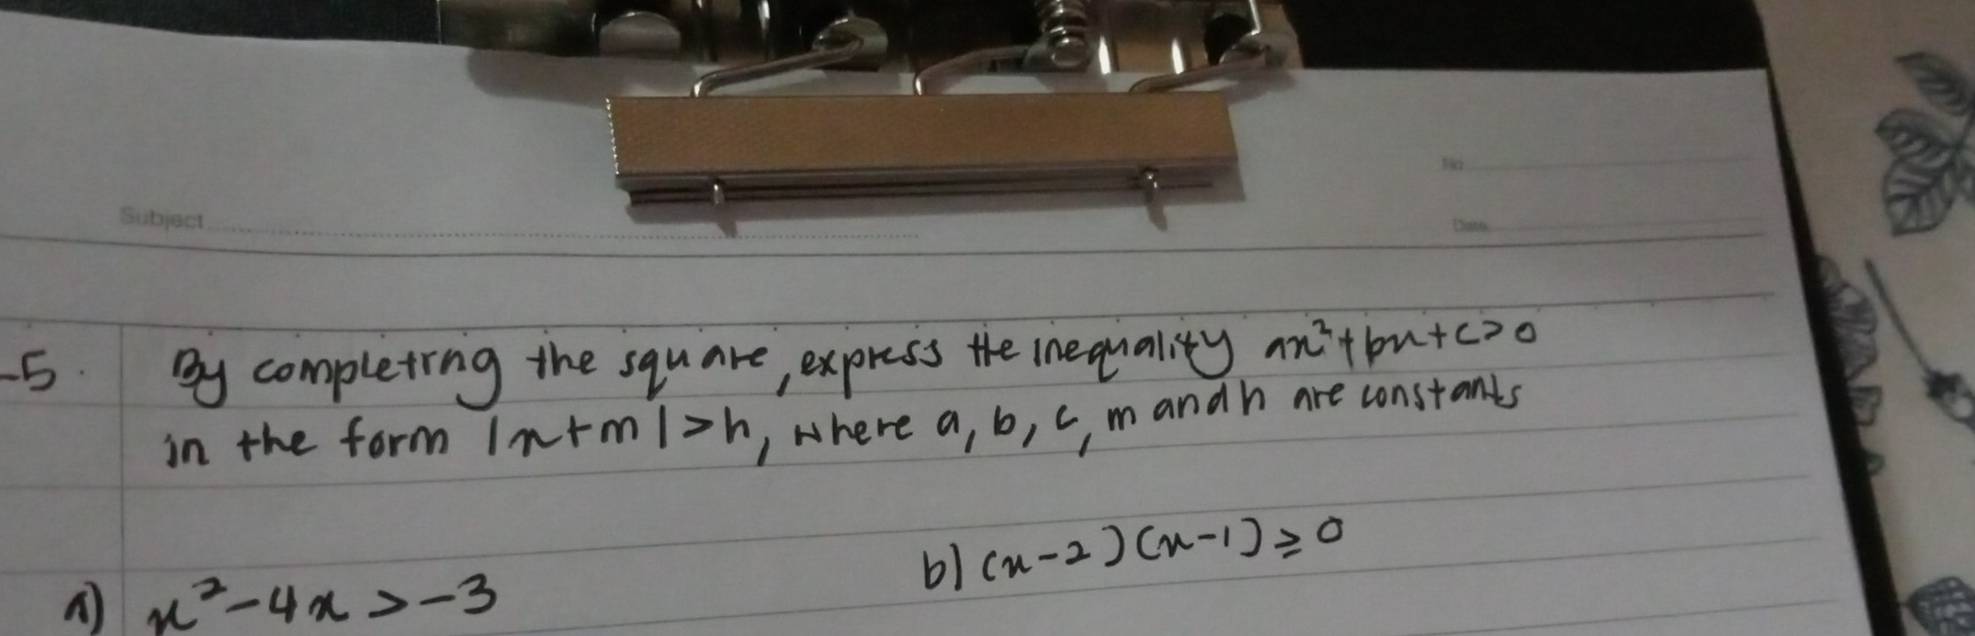 No
Subject
Date
-5. By completing the square, express the inequality ax²+bx+c>0
in the form |x+m|>h, where a, b, c, m and h are constants
b) (x-2)(x-1)≥0
a) x²-4x>-3